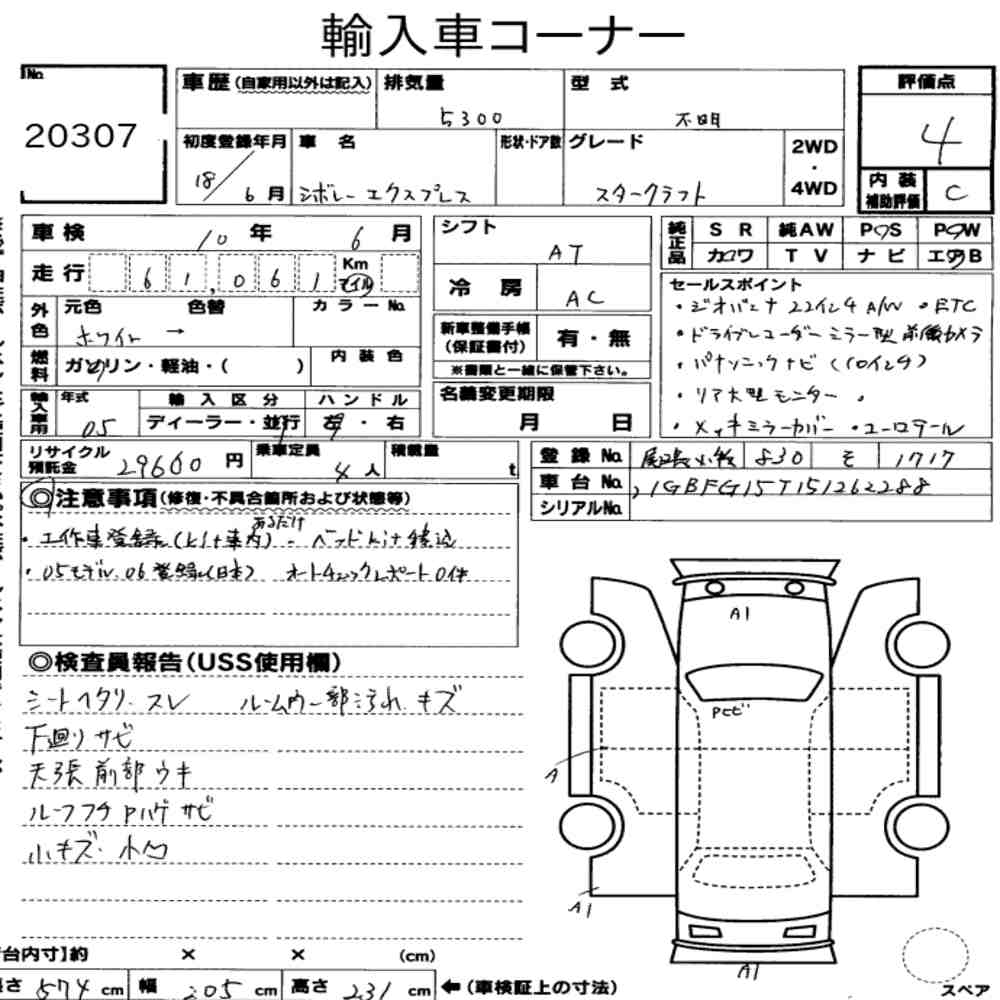 輸入車コーナー
No.
20307
車歴(自家用以外は記入)
排気量
5300
型 式
不明
評価点
4
初度登録年月
18/6月
車 名
シボレー エクスプレス
形状・ドア数
グレード
スタークラフト
2WD
・
4WD
内 装
補助評価
C
車検 10年 6月
走行 61,061 Km マイル
外色
元色 色替 カラーNo.
ホワイト →
燃料
ガソリン・軽油・( )
内 装 色
輸入車用
年式
05
輸 入 区 分
ディーラー・並行
ハ ン ド ル
左・右
リサイクル
預託金
29600円
乗車定員
4人
積載量
t
シフト
AT
冷 房
AC
新車整備手帳
(保証書付)
有・無
※書類と一緒に保管下さい。
名義変更期限
月 日
純正品
S R 純AW P S P W
カワ T V ナ ビ エアB
セールスポイント
・ジオバンナ 22インチ A/W ・ETC
・ドライブレコーダー ミラー型 前後カメラ
・パナソニックナビ (10インチ)
・リア大型モニター
・メッキミラーカバー ・ユーロテール
登 録 No. 尾張小牧 830 そ 1717
車 台 No. 1GBFG15T151262288
シリアルNo.
◎注意事項(修復・不具合箇所および状態等)
あるだけ
・05モデル 06登録(日本) オートチェックレポート0件
◎検査員報告(USS使用欄)
シートヘタリ・スレ ルーム内一部汚れ キズ
下廻りサビ
天張前部ウキ
ルーフフチ Pハゲ サビ
小キズ・小凹
A1
Pトビ
A
A1
A1
スペア
台内寸】約 × × (cm)
長さ 574 cm 幅 205 cm 高さ 231 cm ←(車検証上の寸法)